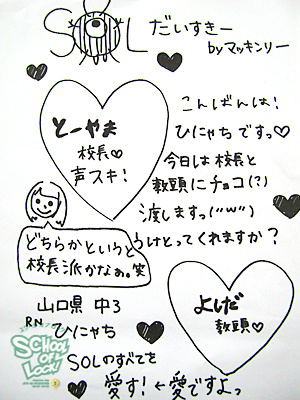 SOL だいすきー
byマッキンリー
とーやま
校長♡
声スキ！
こんばんは！
ひにゃちですっ♡
今日は校長と
教頭にチョコ(?)
渡しますっ(''w'')
うけとってくれますか？
どちらかというと
校長派かなぁ。笑
山口県 中3
RN ひにゃち
SOLのすべてを
愛す！←愛ですよっ
よしだ
教頭♡
SCHOOL
OF
LOCK!